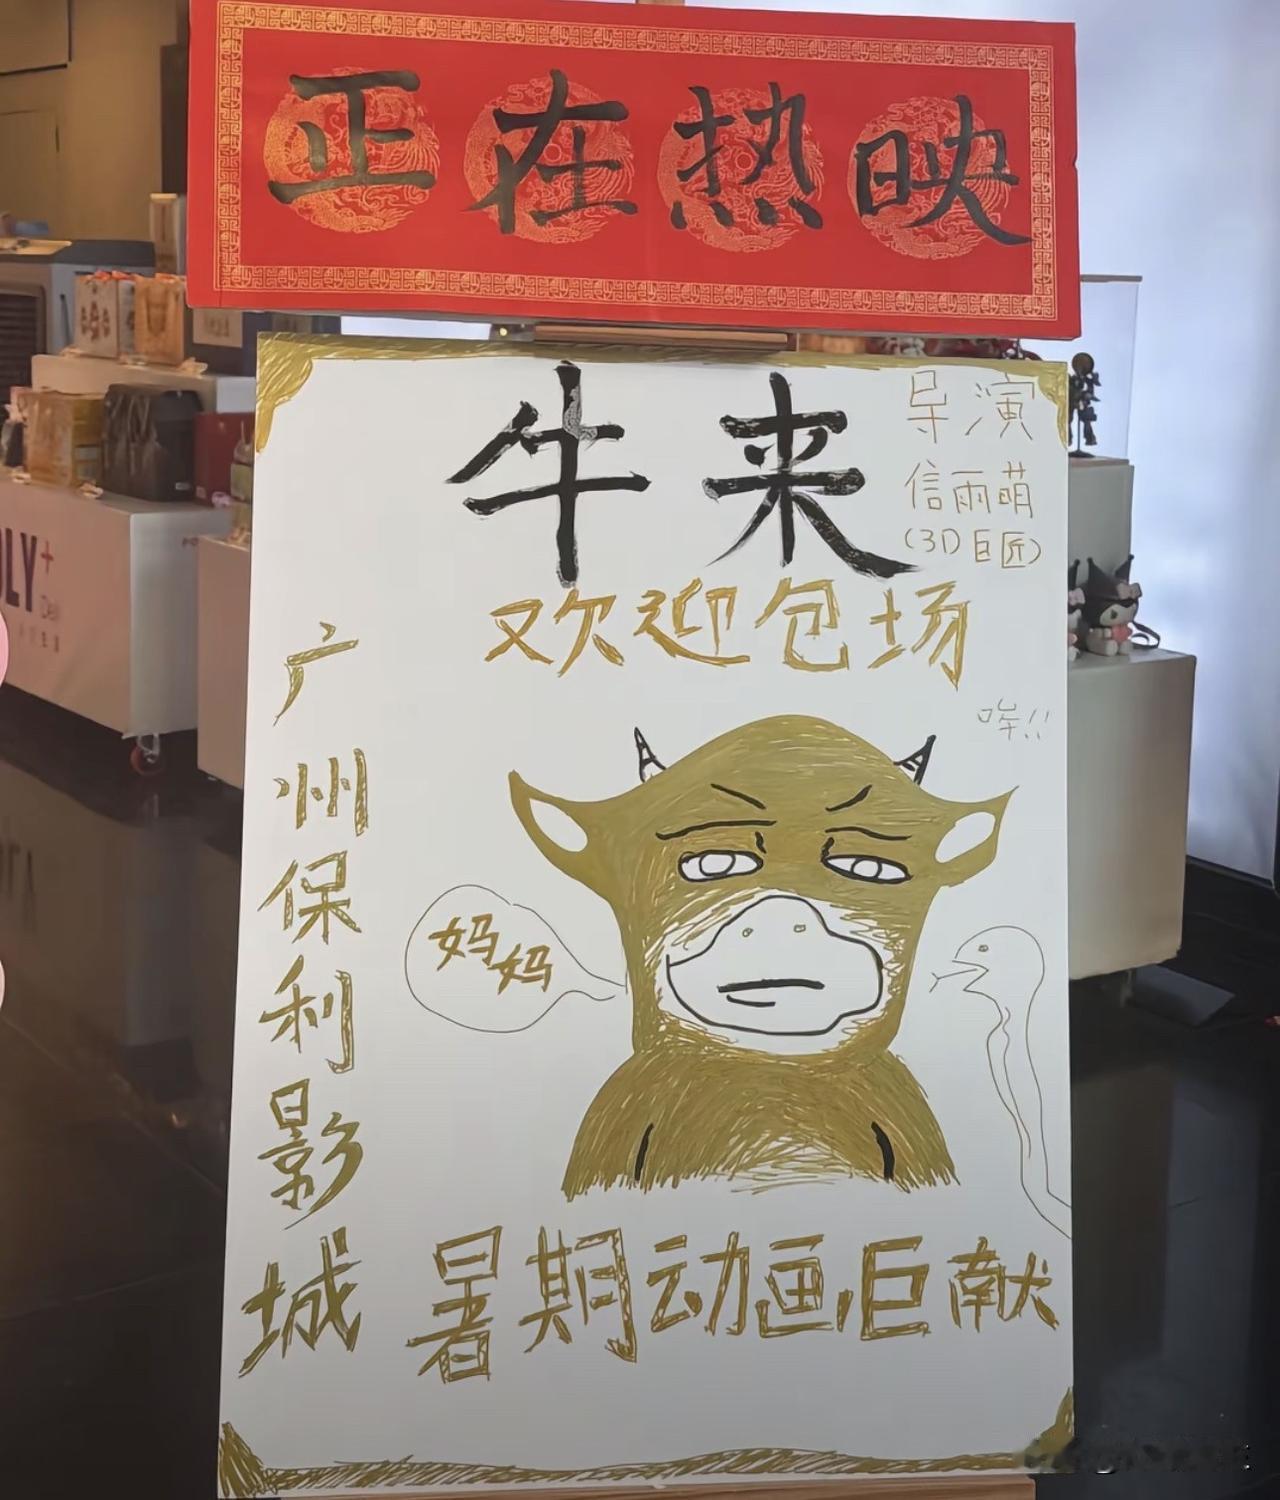 正在热映
牛来
导演
信雨萌
(3D巨匠)
欢迎包场
哞!!
广州保利影城
妈妈
暑期动画巨献
OLY+
Deli